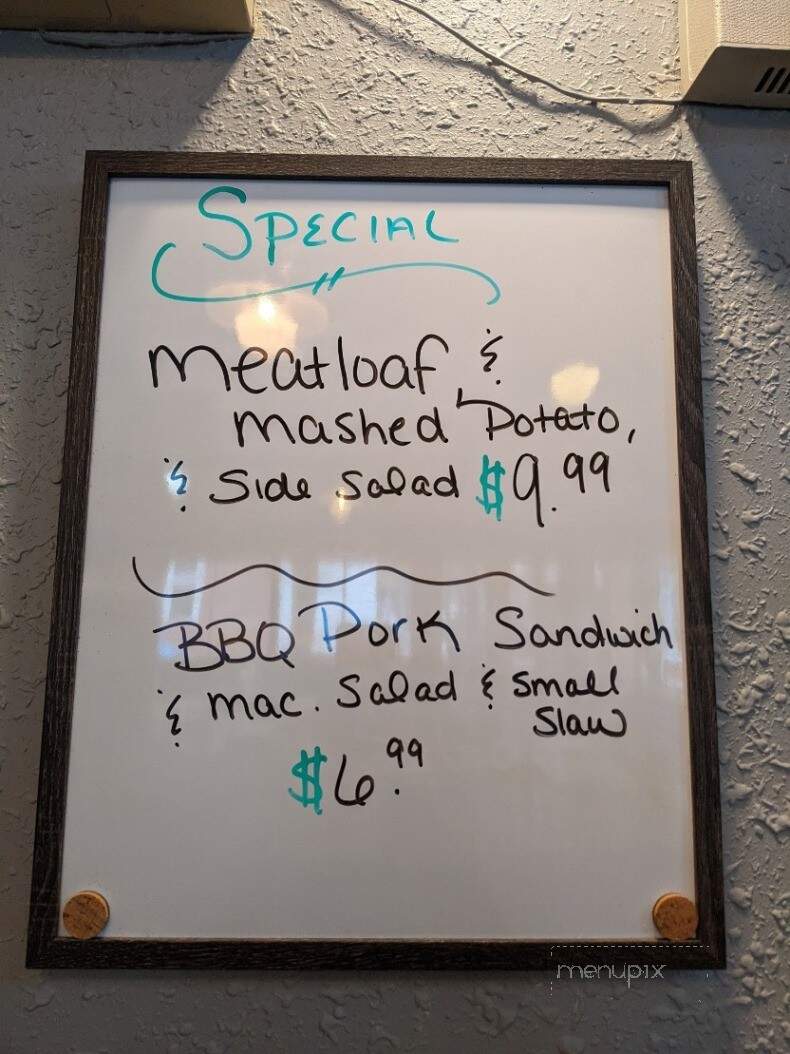 Special
Meatloaf &
Mashed Potato,
& Side Salad $9.99
BBQ Pork Sandwich
& Mac. Salad & Small
Slaw
$6.99
menupix